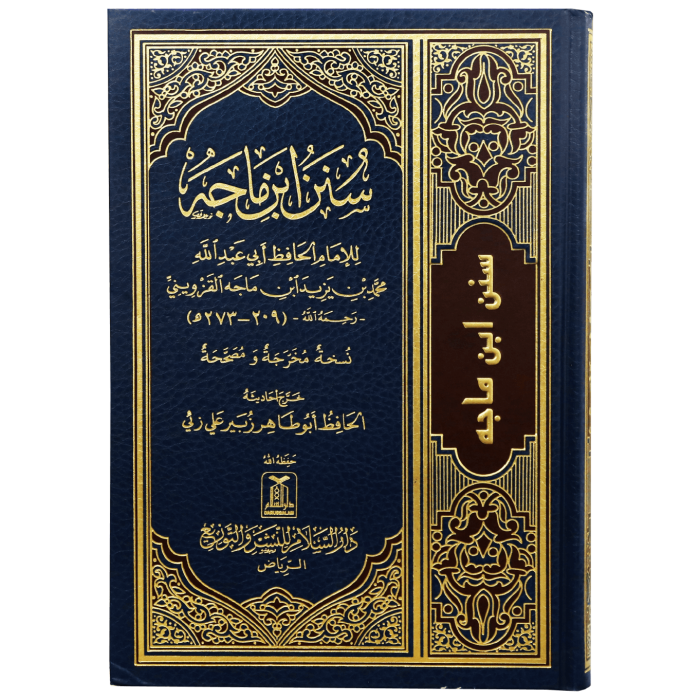 سُنَنُ ابْنِ مَاجَهْ
للإمَامِ الحَافِظِ أبِي عَبْدِ اللَّهِ
مُحَمَّدِ بْنِ يَزِيدَ ابْنِ مَاجَه القَزْوِينيِّ
- رَحِمَهُ اللَّهُ - (٢٠٩ – ٢٧٣ه)
نُسْخَةٌ مُخَرَّجَةٌ وَ مُصَحَّحَةٌ
خَرَّجَ أحَادِيثَهُ
الحَافِظُ أبُو طَاهِر زُبَير عَلي زئي
حفظه الله
دارالسلام
DARUSSALAM
دَارُ السَّلامِ لِلنَّشْرِ وَ التَّوْزِيْع
الرِّيَاض
سنن ابن ماجه